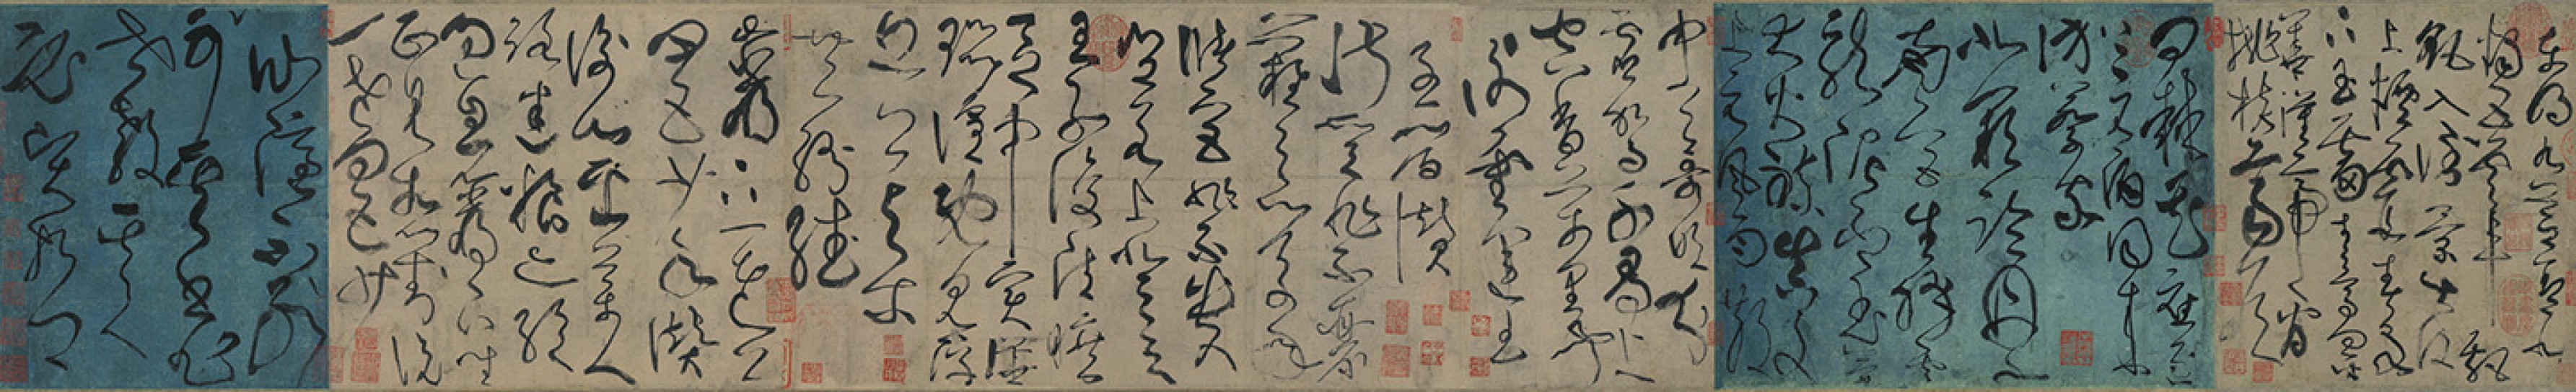 東明九芝蓋北
燭五雲車飄
颻入倒景出沒
上煙霞春泉
下玉霤青鳥向金
華漢帝看
桃核齊侯
問棘花應逐
上元酒同來
訪蔡家
北闕臨丹水
南宮生絳雲
龍泥印玉簡
大火煉真文
上元風雨散
中天哥吹分
靈駕千尋上
空香萬里聞
謝靈運王
子晉贊
淑質非不麗
難之以萬年
儲宮非不貴
豈若上登天
王子復清曠
區中實譁囂
喧既見浮
丘公與爾
共紛繙
巖下一老公
四五少年贊
衡山采藥人
路迷糧亦絕
過息巖下坐
正見相對說
一老四五少
仙隱不別
可其書非
世教其人
必賢哲